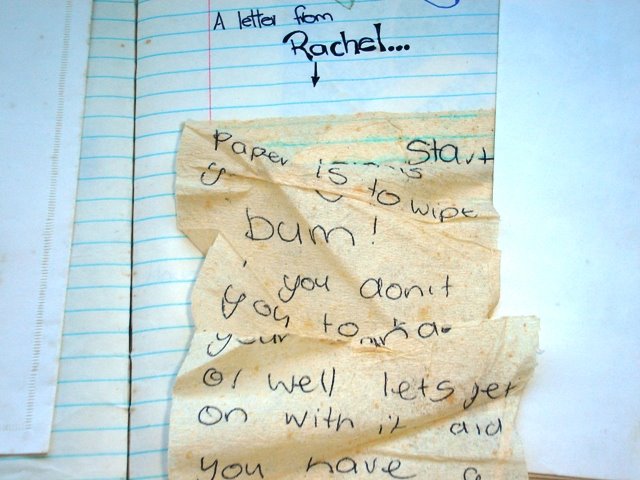 A letter from
Rachel...
Start
Paper is
to wipe
bum!
you don't
you to
your
O' well lets get
on with it did
you have a